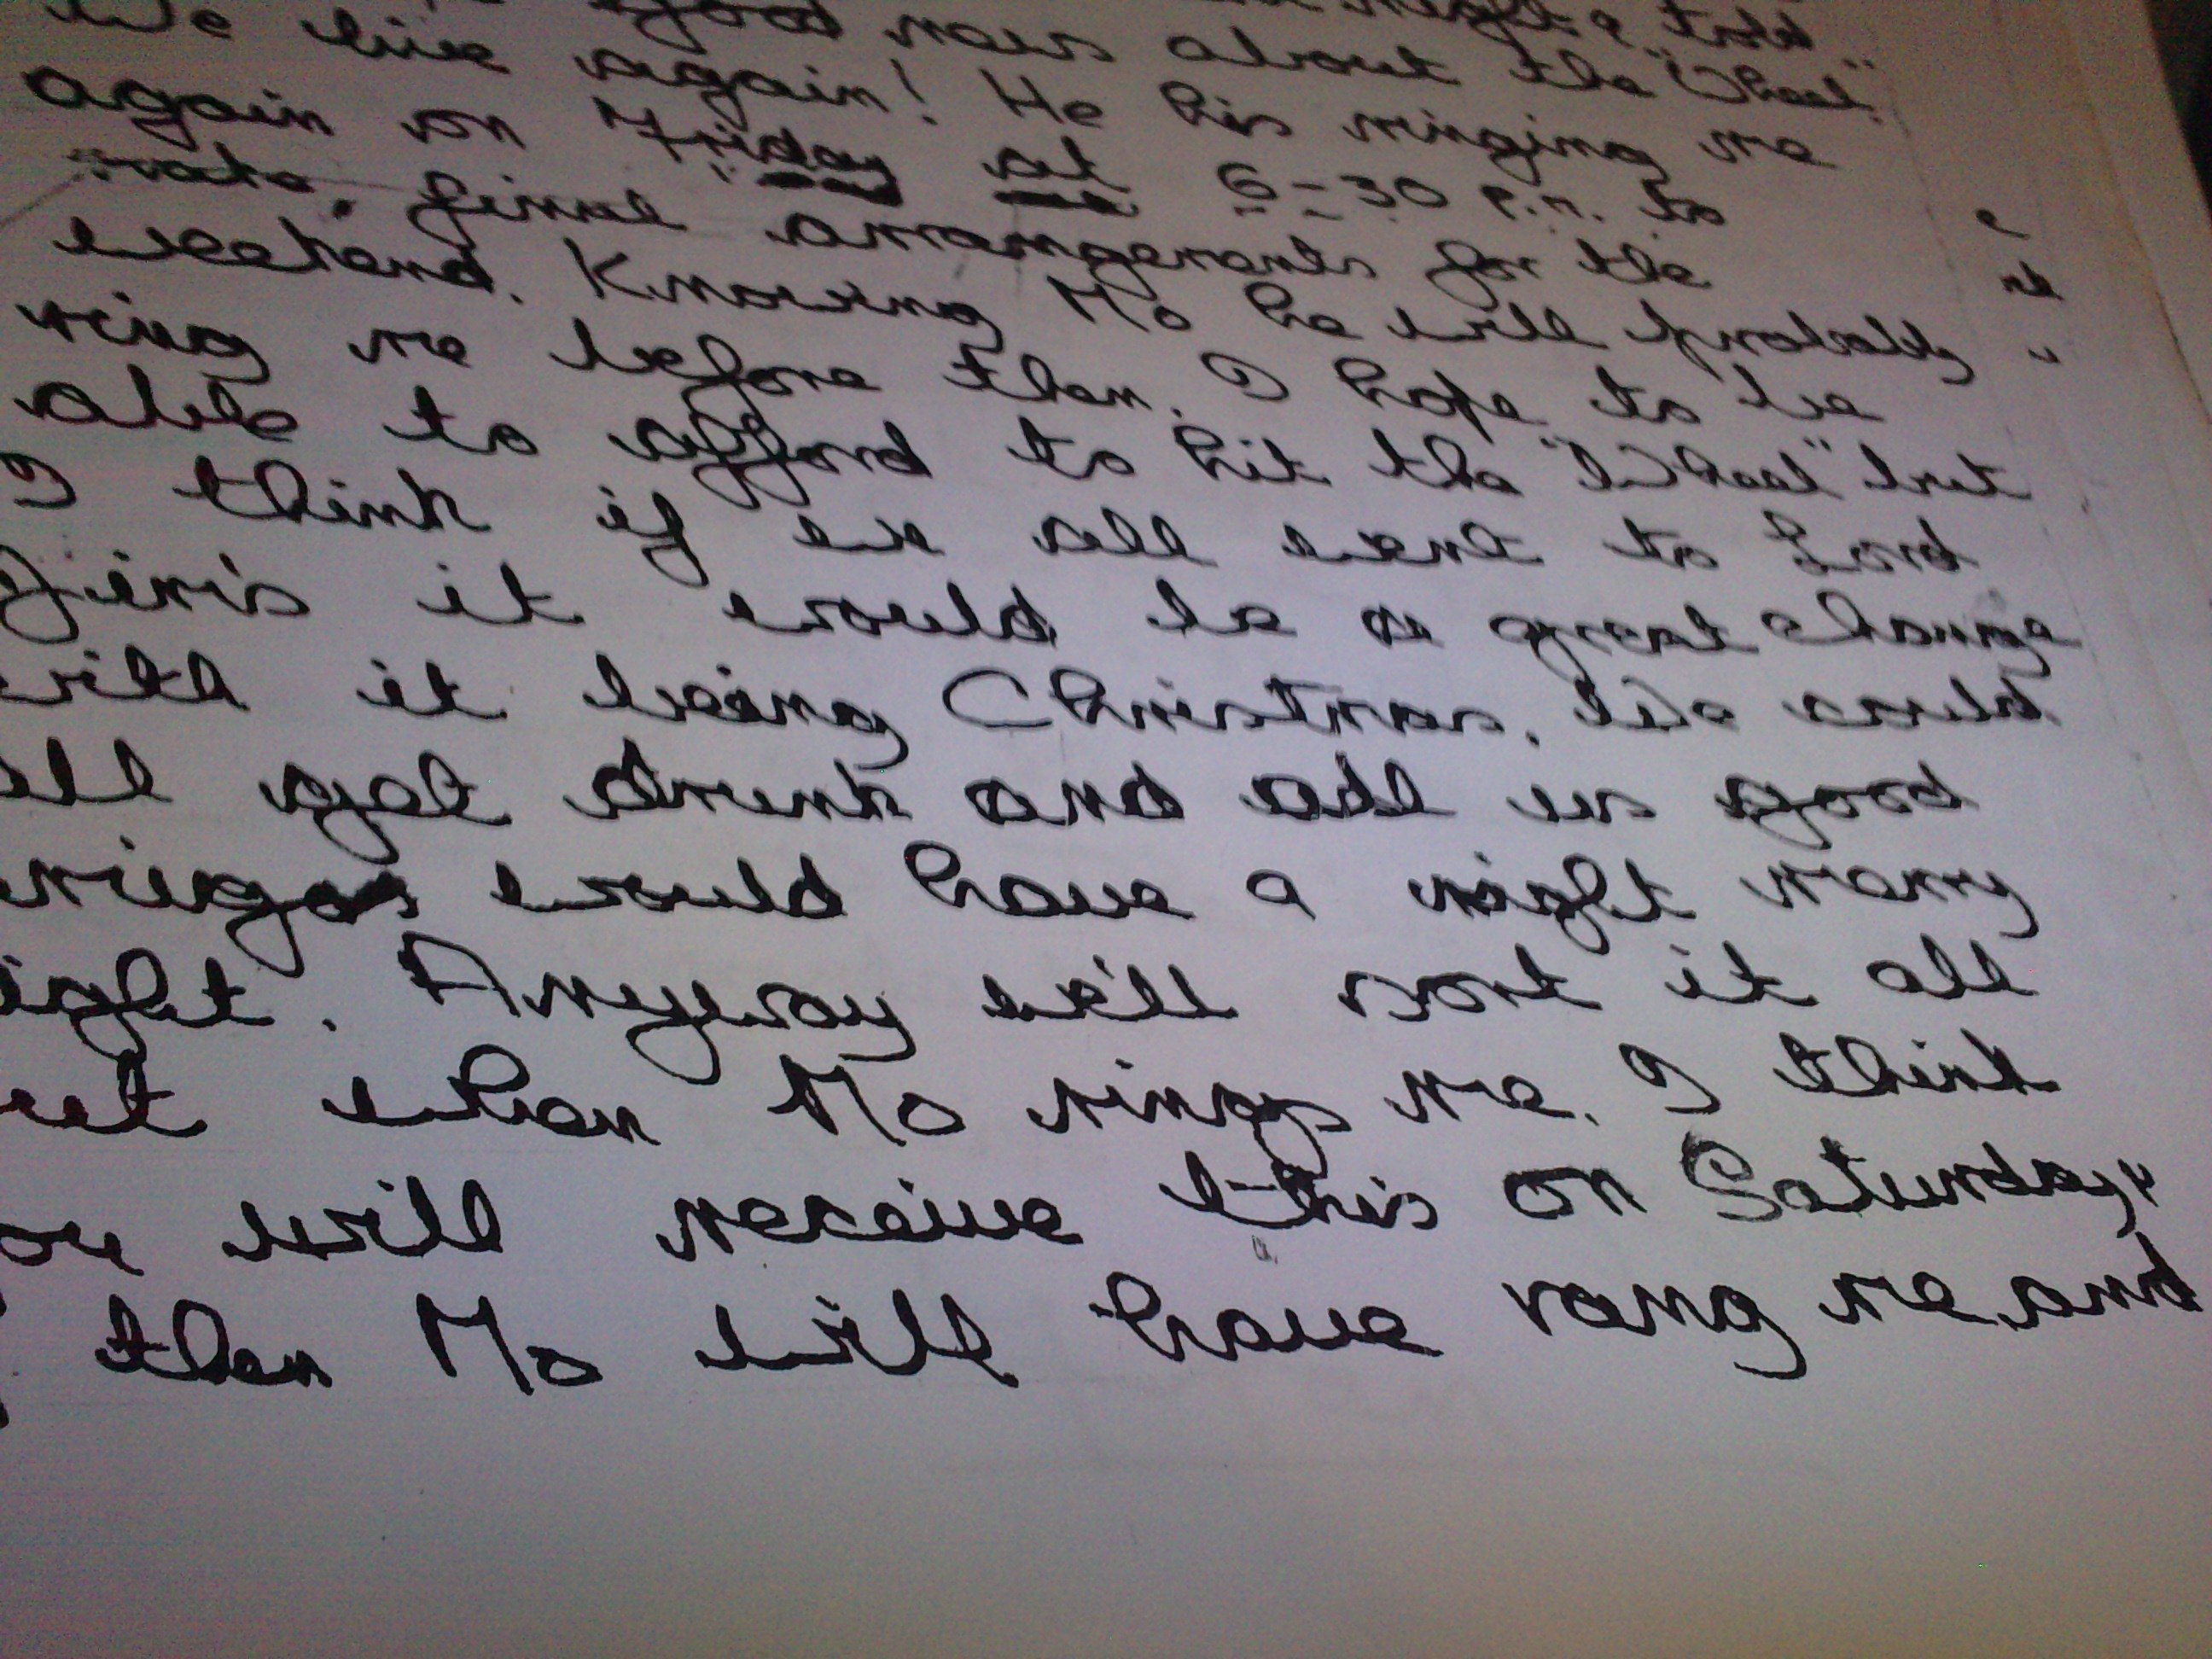 night & told
good news about the "Wheel".
We live again! He his ringing me
again on Friday at 6-30 P.M. to
make final arrangements for the
weekend. Knowing Mo he will probably
ring me before then. I hope to be
able to afford to hit the "Wheel" but
I think if we all went to Lord
Jim's it would be a great change
with it being Christmas. We could
all get drunk and all us good
would have a right merry
ight. Anyway we'll sort it all
ut when Mo rings me. I think
ou will receive this on Saturday,
then Mo will have rang me and